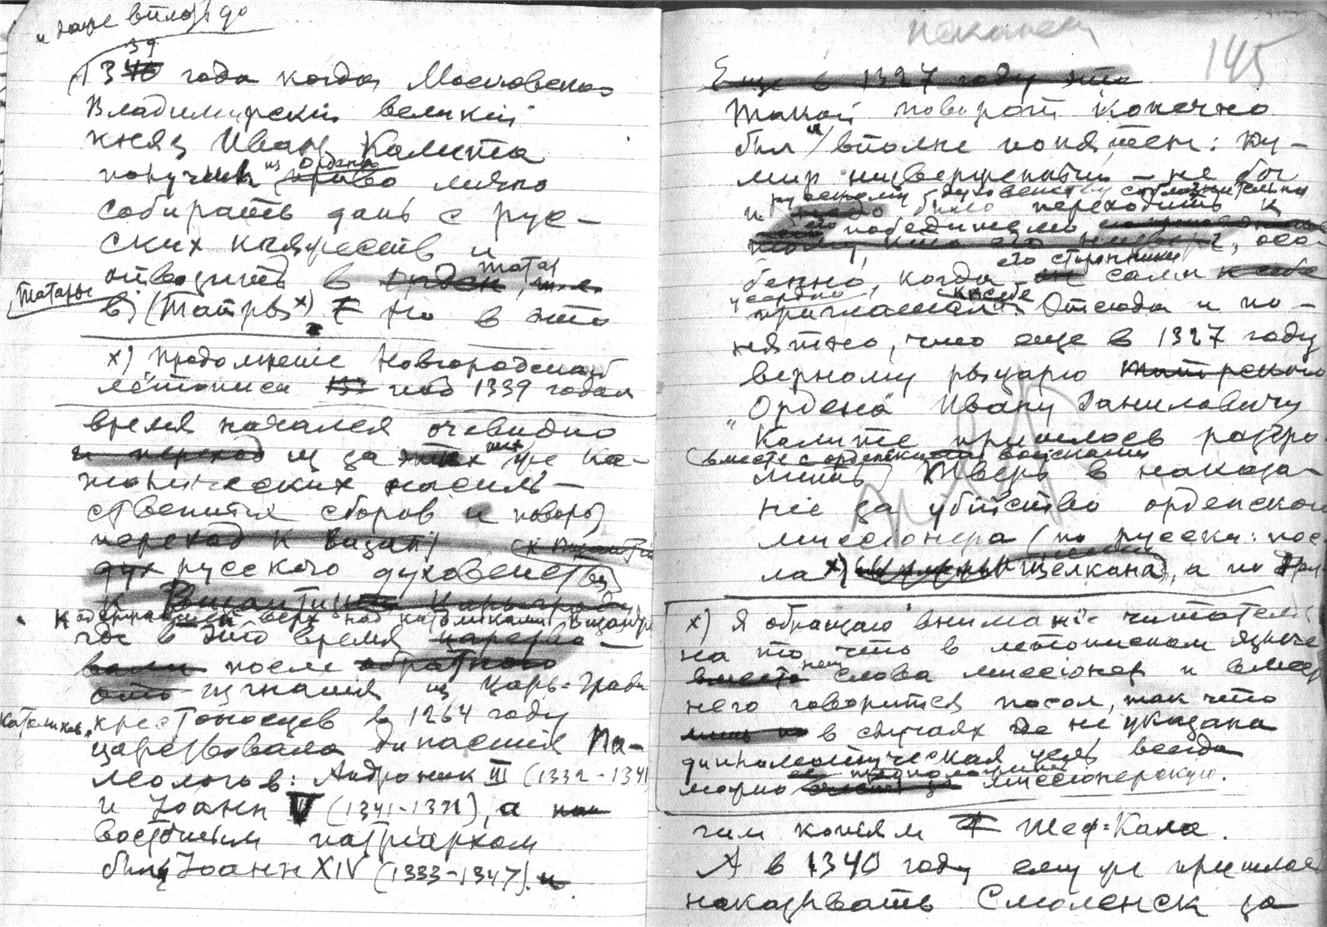 и даже вплоть до
39
1340 года когда Московско
Владимирскій великій
князь Иванъ Калита
получилъ изъ Ордена право лично
собирать дань с рус-
ских княжеств и
отвозить в Орден, т. е. татар
Татары
в (Татры x) Но в это
x) Продолженіе Новгородской
летописи под 1339 годом
время начался очевидно
и переход из за этих уже ка-
толических насиль-
ственных сборов и поворот
переход к Визант
русского духовенства
к Византии Царьграду
к одержавшей верх над католиками Византіи
где в это время
после обратного
изгнанія из Царь-Града
католиков,
крестоносцев в 1264 году
царствовала династія Па-
леологов: Андроник III (1332-1341
и Іоанн V (1341-1391), а
восточным патріархом
был Іоанн XIV (1333-1347).
145
Еще в 1327 году это
Такой поворот конечно
был и вполне понятен: Ку-
мир низверженный - не бог
русскому духовенству соблазнительно
и надо было переходить к
его победителям
тому, кто его низверг, осо-
его сторонники
бенно, когда он сами к себе
усердно к себе
приглашали. Отсюда и по-
нятно, что еще в 1327 году
верному рыцарю татарского
"Ордена" Ивану Даниловичу
Калите пришлось разгро-
(вместе с орденскими войсками
мить) Тверь в наказа-
ніе за убійство орденского
миссіонера (по русски: пос-
ла x) Щелкана), а по дру-
x) Я обращаю вниманіе читателя
на то, что в летописном языке
вместо нет слова миссіонер и вместо
него говорится посол, так что
в случаях где не указана
дипломатическая цель всегда
можно ее предполагать миссіонерскую.
гим копіям Шеф-Кала.
А в 1340 году ему уж пришлось
наказывать Смоленск за